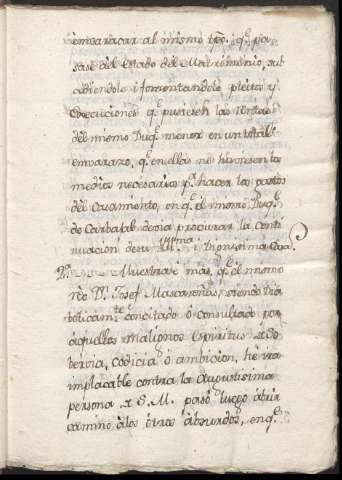 embaraçar al mismo tpo. q.e pa-
sase del estado del Matrimonio, sus
citandole, i fomentandole pleitos y
Execuciones q.e pusiesen las rentas
del mismo Duq.e menor en un total
embarazo, q.e en ellas no hubiesen los
medios necesarios p.a hacer los gastos
del Casamiento, en q.e el mismo Duq.e
de Cadabal devia procurar la conti
nuacion de su Ill.ustrma i Dignissima Casa
Muestrase mas, q.e el mismo
reo D.n Josef Mascareñas, siendo dia
bolicam.te concitado o consultado por
aquellos malignos Espiritus de So
bervia, codicia, ò ambicion, hè ira
implacable contra la Augustisima
persona de S. M. pasó luego abrir
camino à los otros absurdos, en q.e